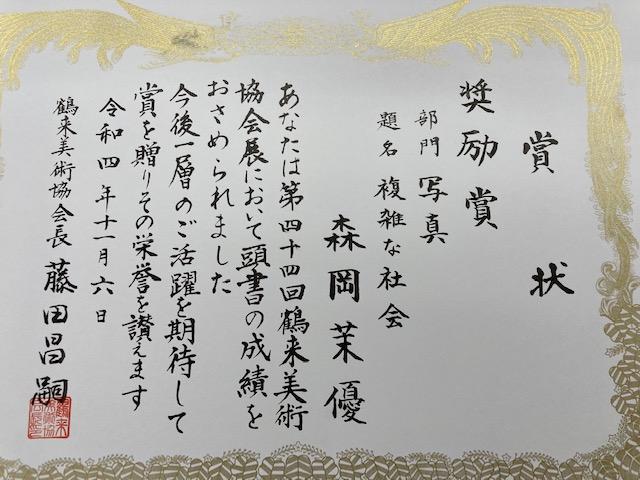 賞状
奨励賞
部門 写真
題名 複雑な社会
森岡茉優
あなたは第四十四回鶴来美術
協会展において頭書の成績を
おさめられました
今後一層のご活躍を期待して
賞を贈りその栄誉を讃えます
令和四年十一月六日
鶴来美術協会長 藤田昌嗣